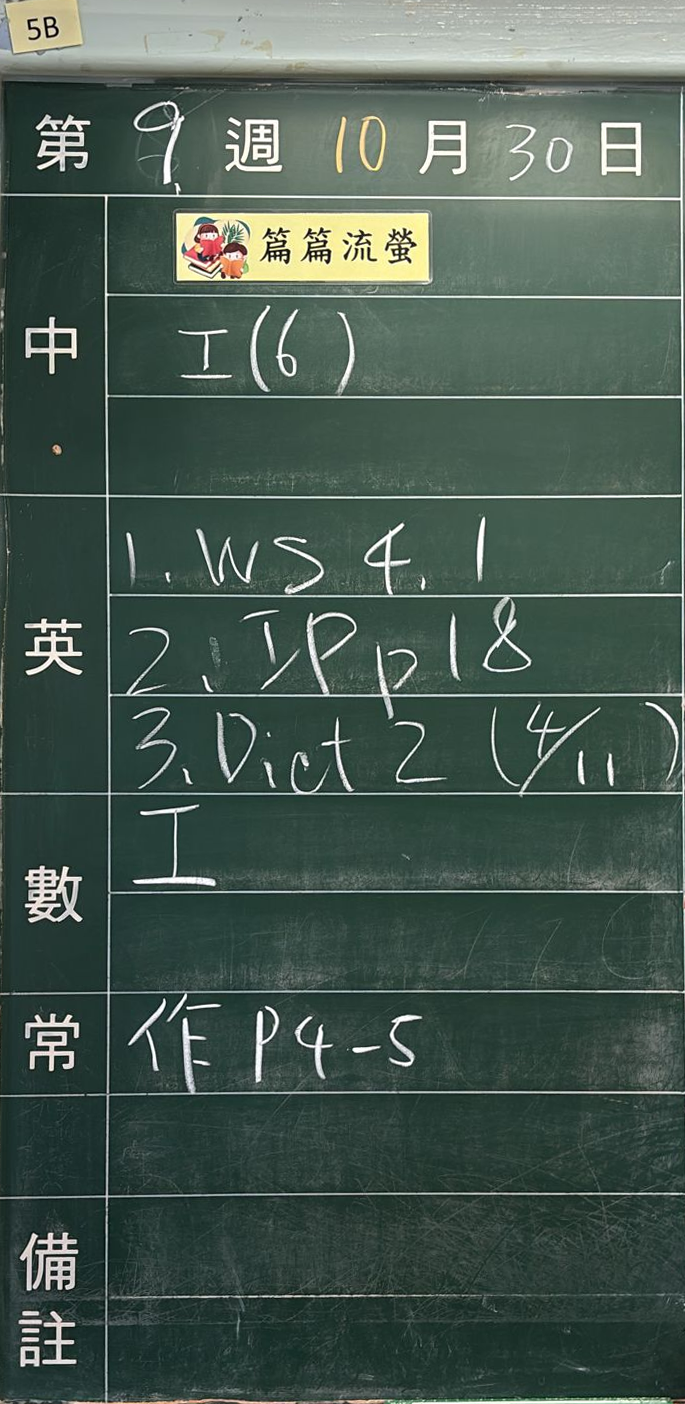 5B
第 9 週 10 月 30 日
中
篇篇流螢
工(6)
英
1. WS 4.1
2. IP p18
3. Dict 2 (4/11)
數
工
常
作 P4-5
備註